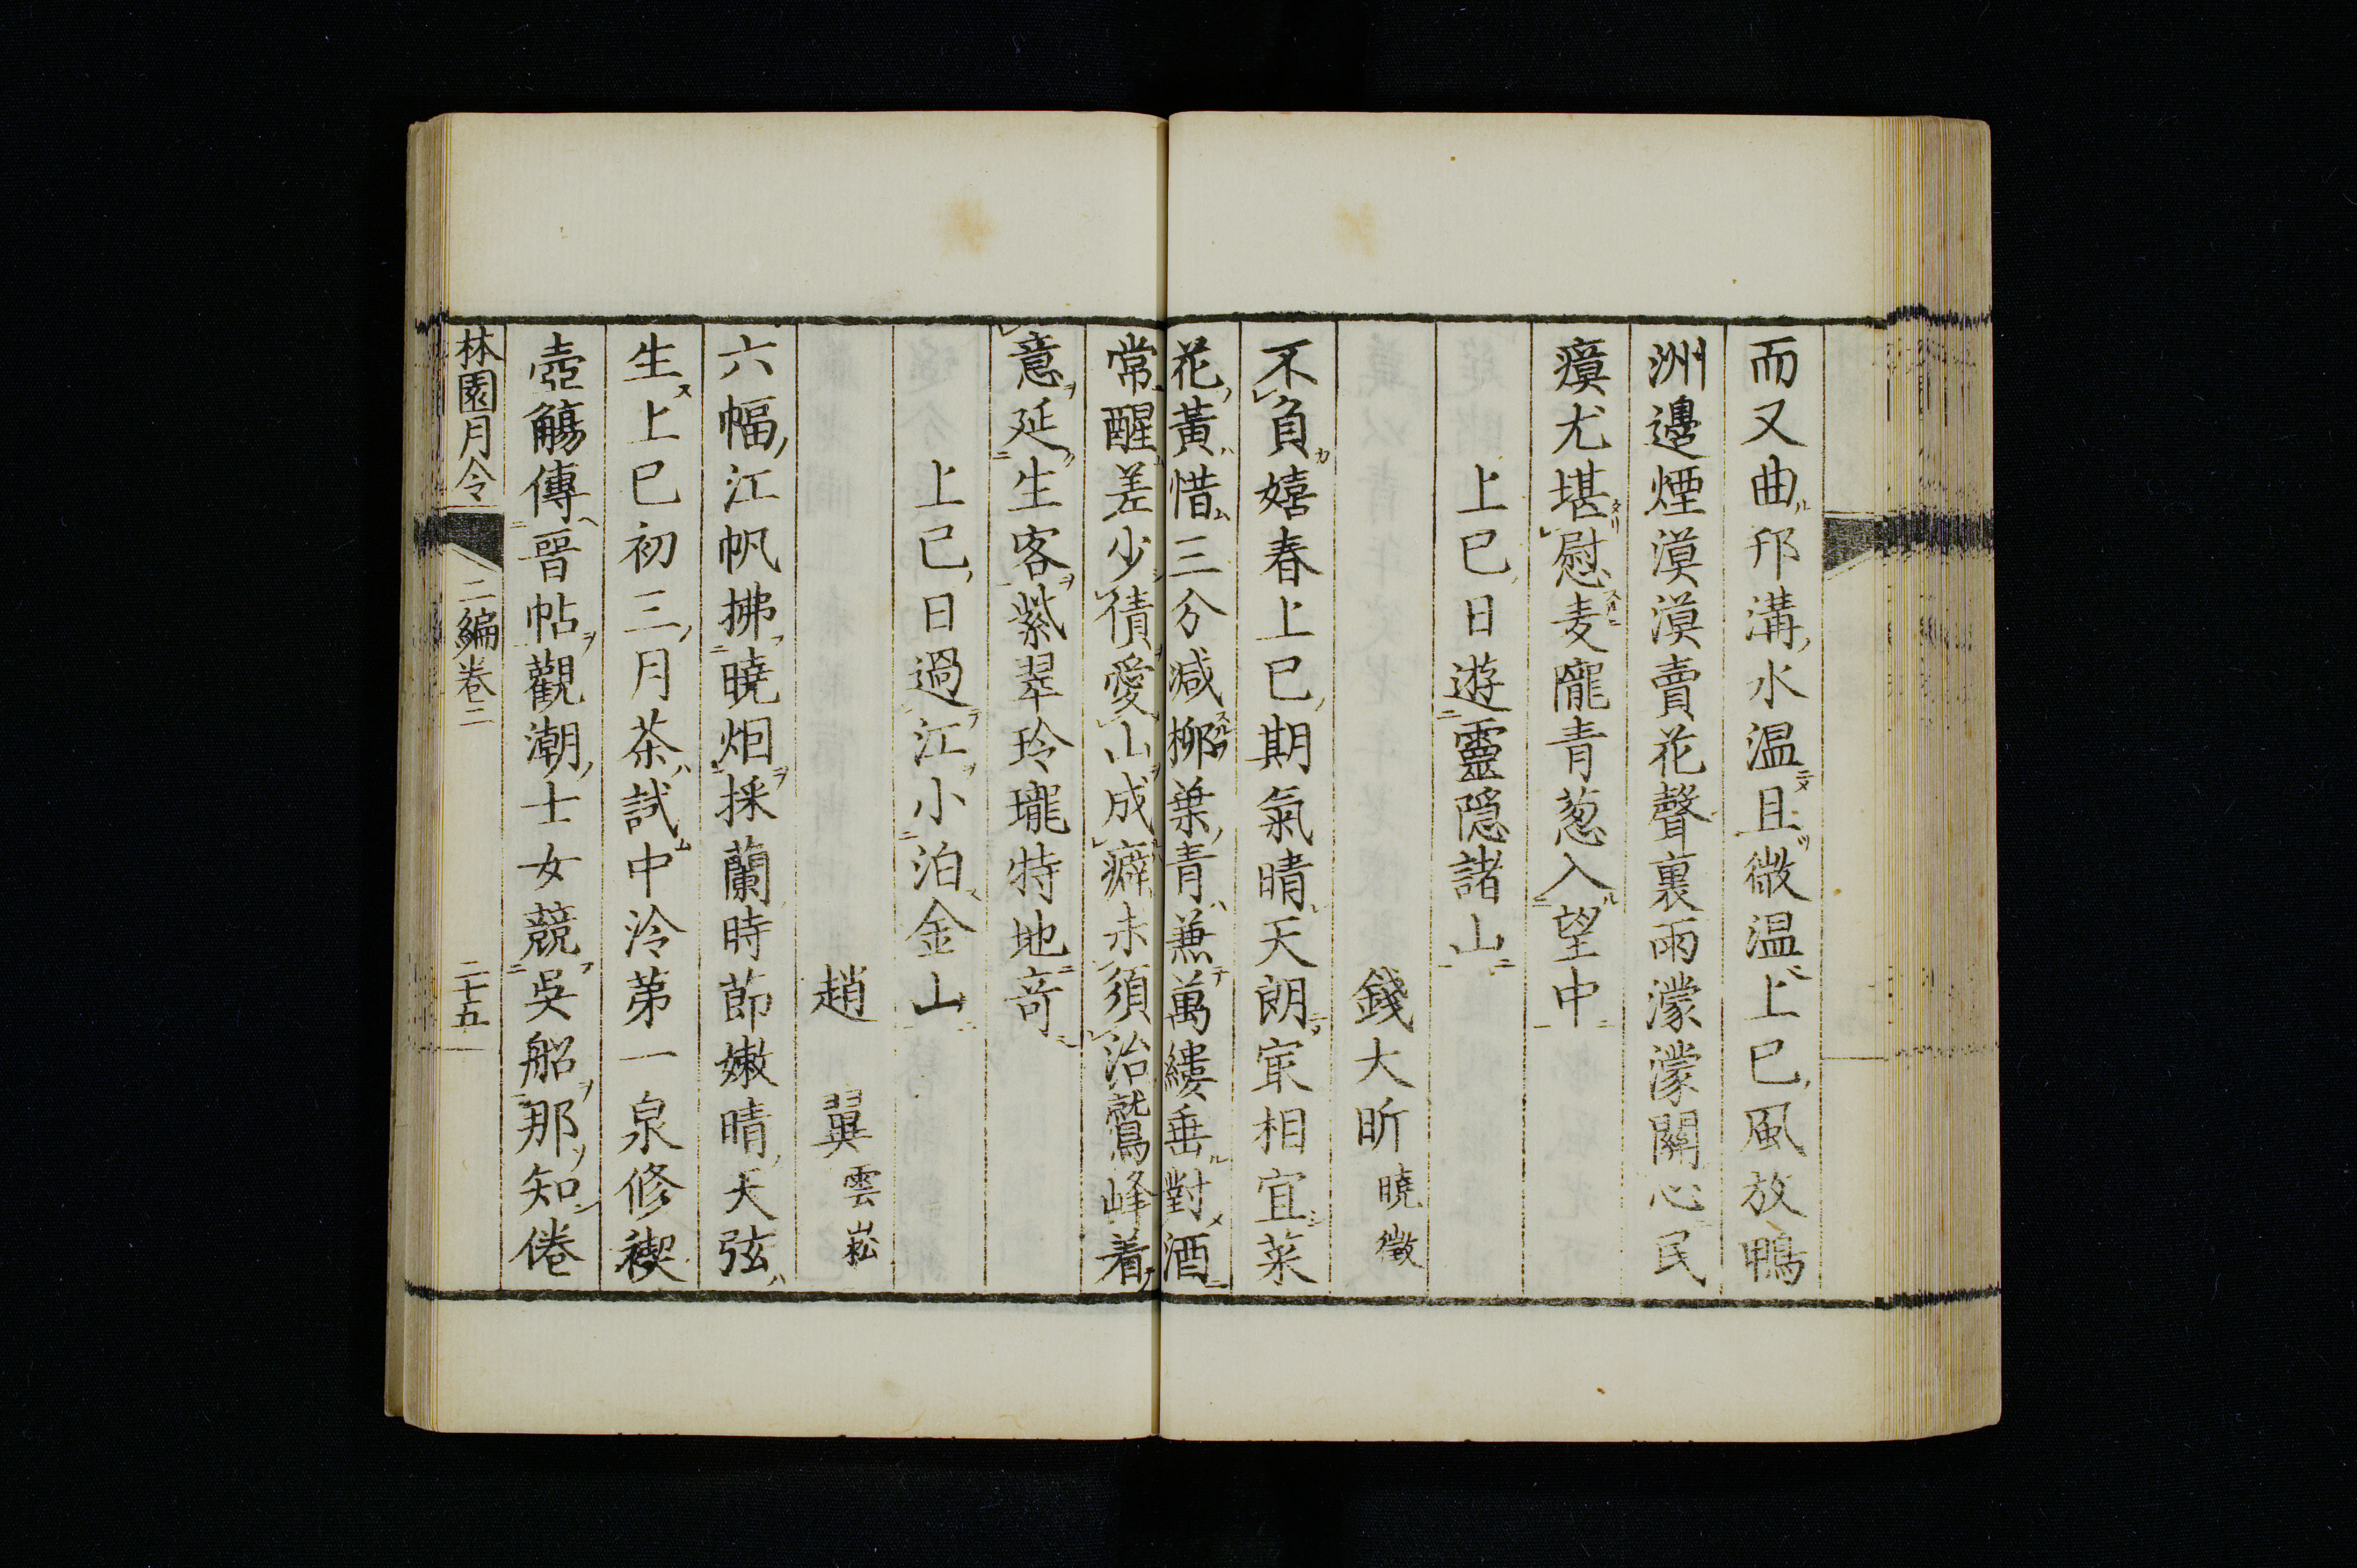 而又曲邗溝水温且微温上巳風放鴨
洲邊煙漠漠賣花聲裏雨濛濛關心民
瘼尤堪慰麦隴青葱入望中
上巳日遊靈隠諸山
錢大昕 曉徵
不負嬉春上巳期氣晴天朗㝡相宜菜
花黃惜三分減柳葉青蒹萬縷垂對酒
常醒差少債愛山成癖未須治鷲峰着
意延生客紫翠玲瓏特地竒
上巳日過江小泊金山
趙 翼 雲崧
六幅江帆拂曉烟採蘭時節嫩晴天弦
生上巳初三月茶試中泠第一泉修禊
壺觴傳晉帖觀潮士女競吳船那知倦
林園月令 二編卷二 二十五